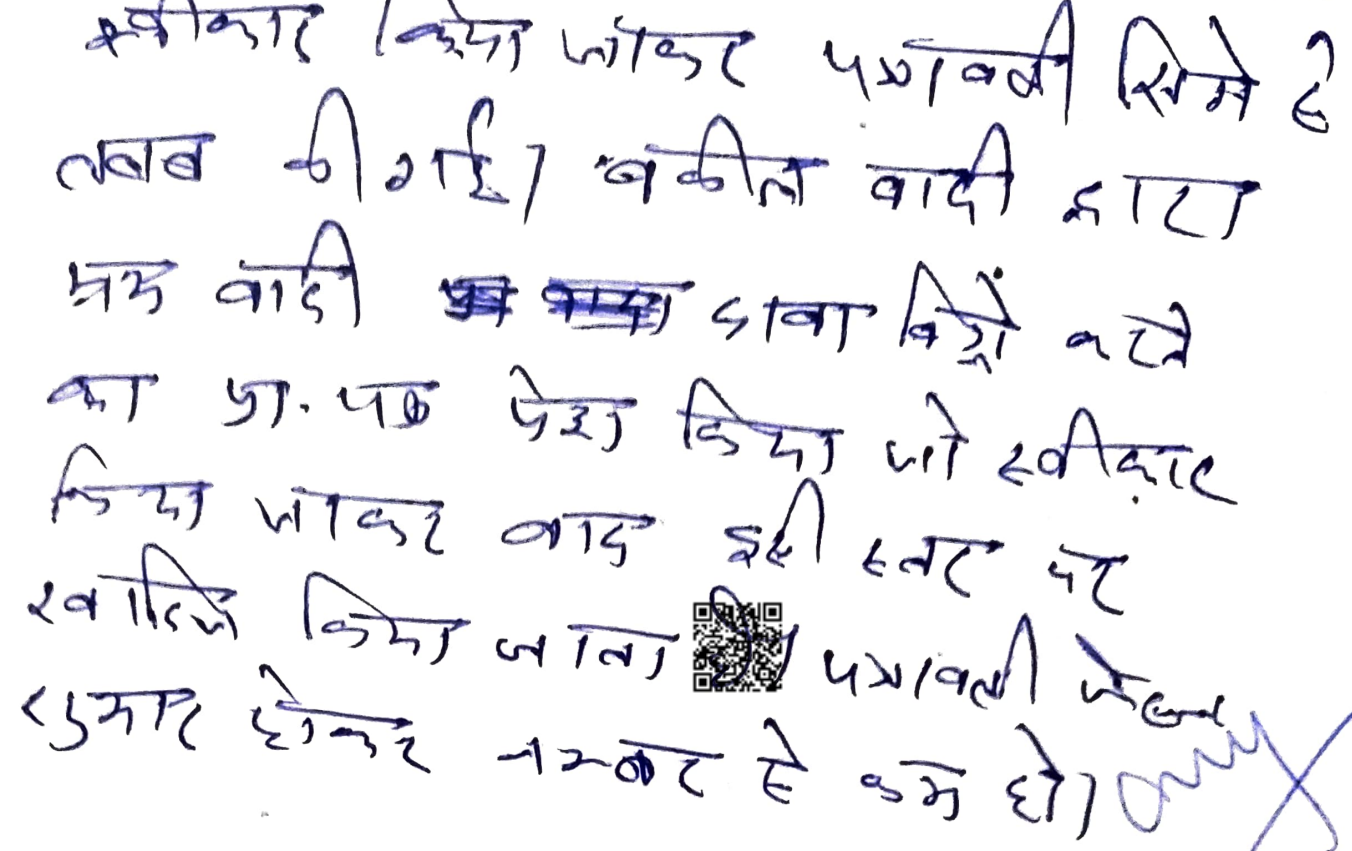 स्वीकार किया जाकर पत्रावली सिगे से
तलब की गई। वकील वादी द्वारा
मय वादी दावा विड्रो करने
का प्रा. पत्र पेश किया जो स्वीकार
किया जाकर वाद इसी स्तर पर
खारिज किया जाता है। पत्रावली फैसल
शुमार होकर नम्बर से कम हो।